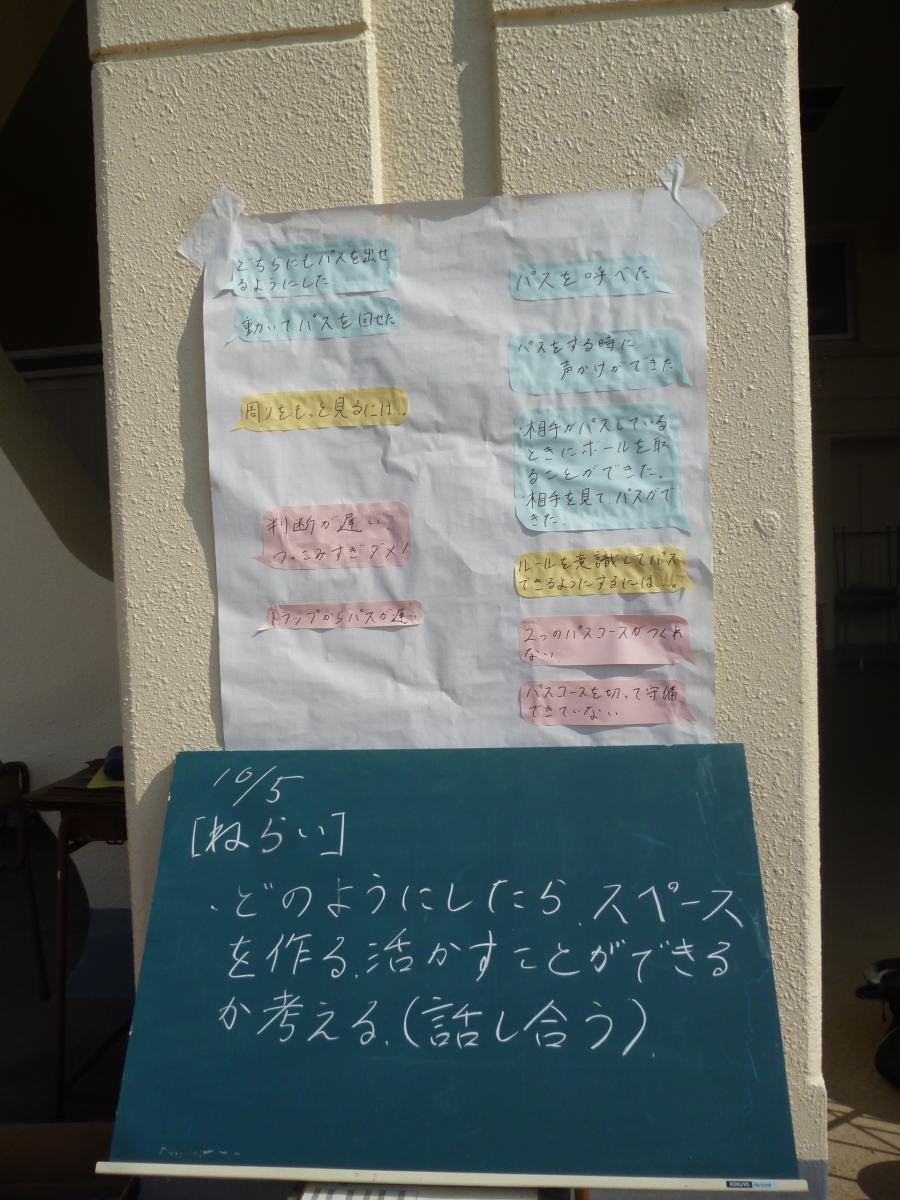 どちらにもパスを出せ
るようにした
動いてパスを回せた
周りをもっと見るには..
判断が遅い
つっこみすぎダメ!
トラップからパスが遅い
パスを呼べた
パスをする時に
声かけができた
・相手がパスしている
ときにボールを取
ることができた。
・相手を見てパスがで
きた.
ルールを意識してパス
できるようにするには...。
2つのパスコースがつくれ
ない
パスコースを切って守備
できていない
10/5
[ねらい]
・どのようにしたら、スペース
を作る、活かすことができる
か考える。(話し合う)
KOKUYO